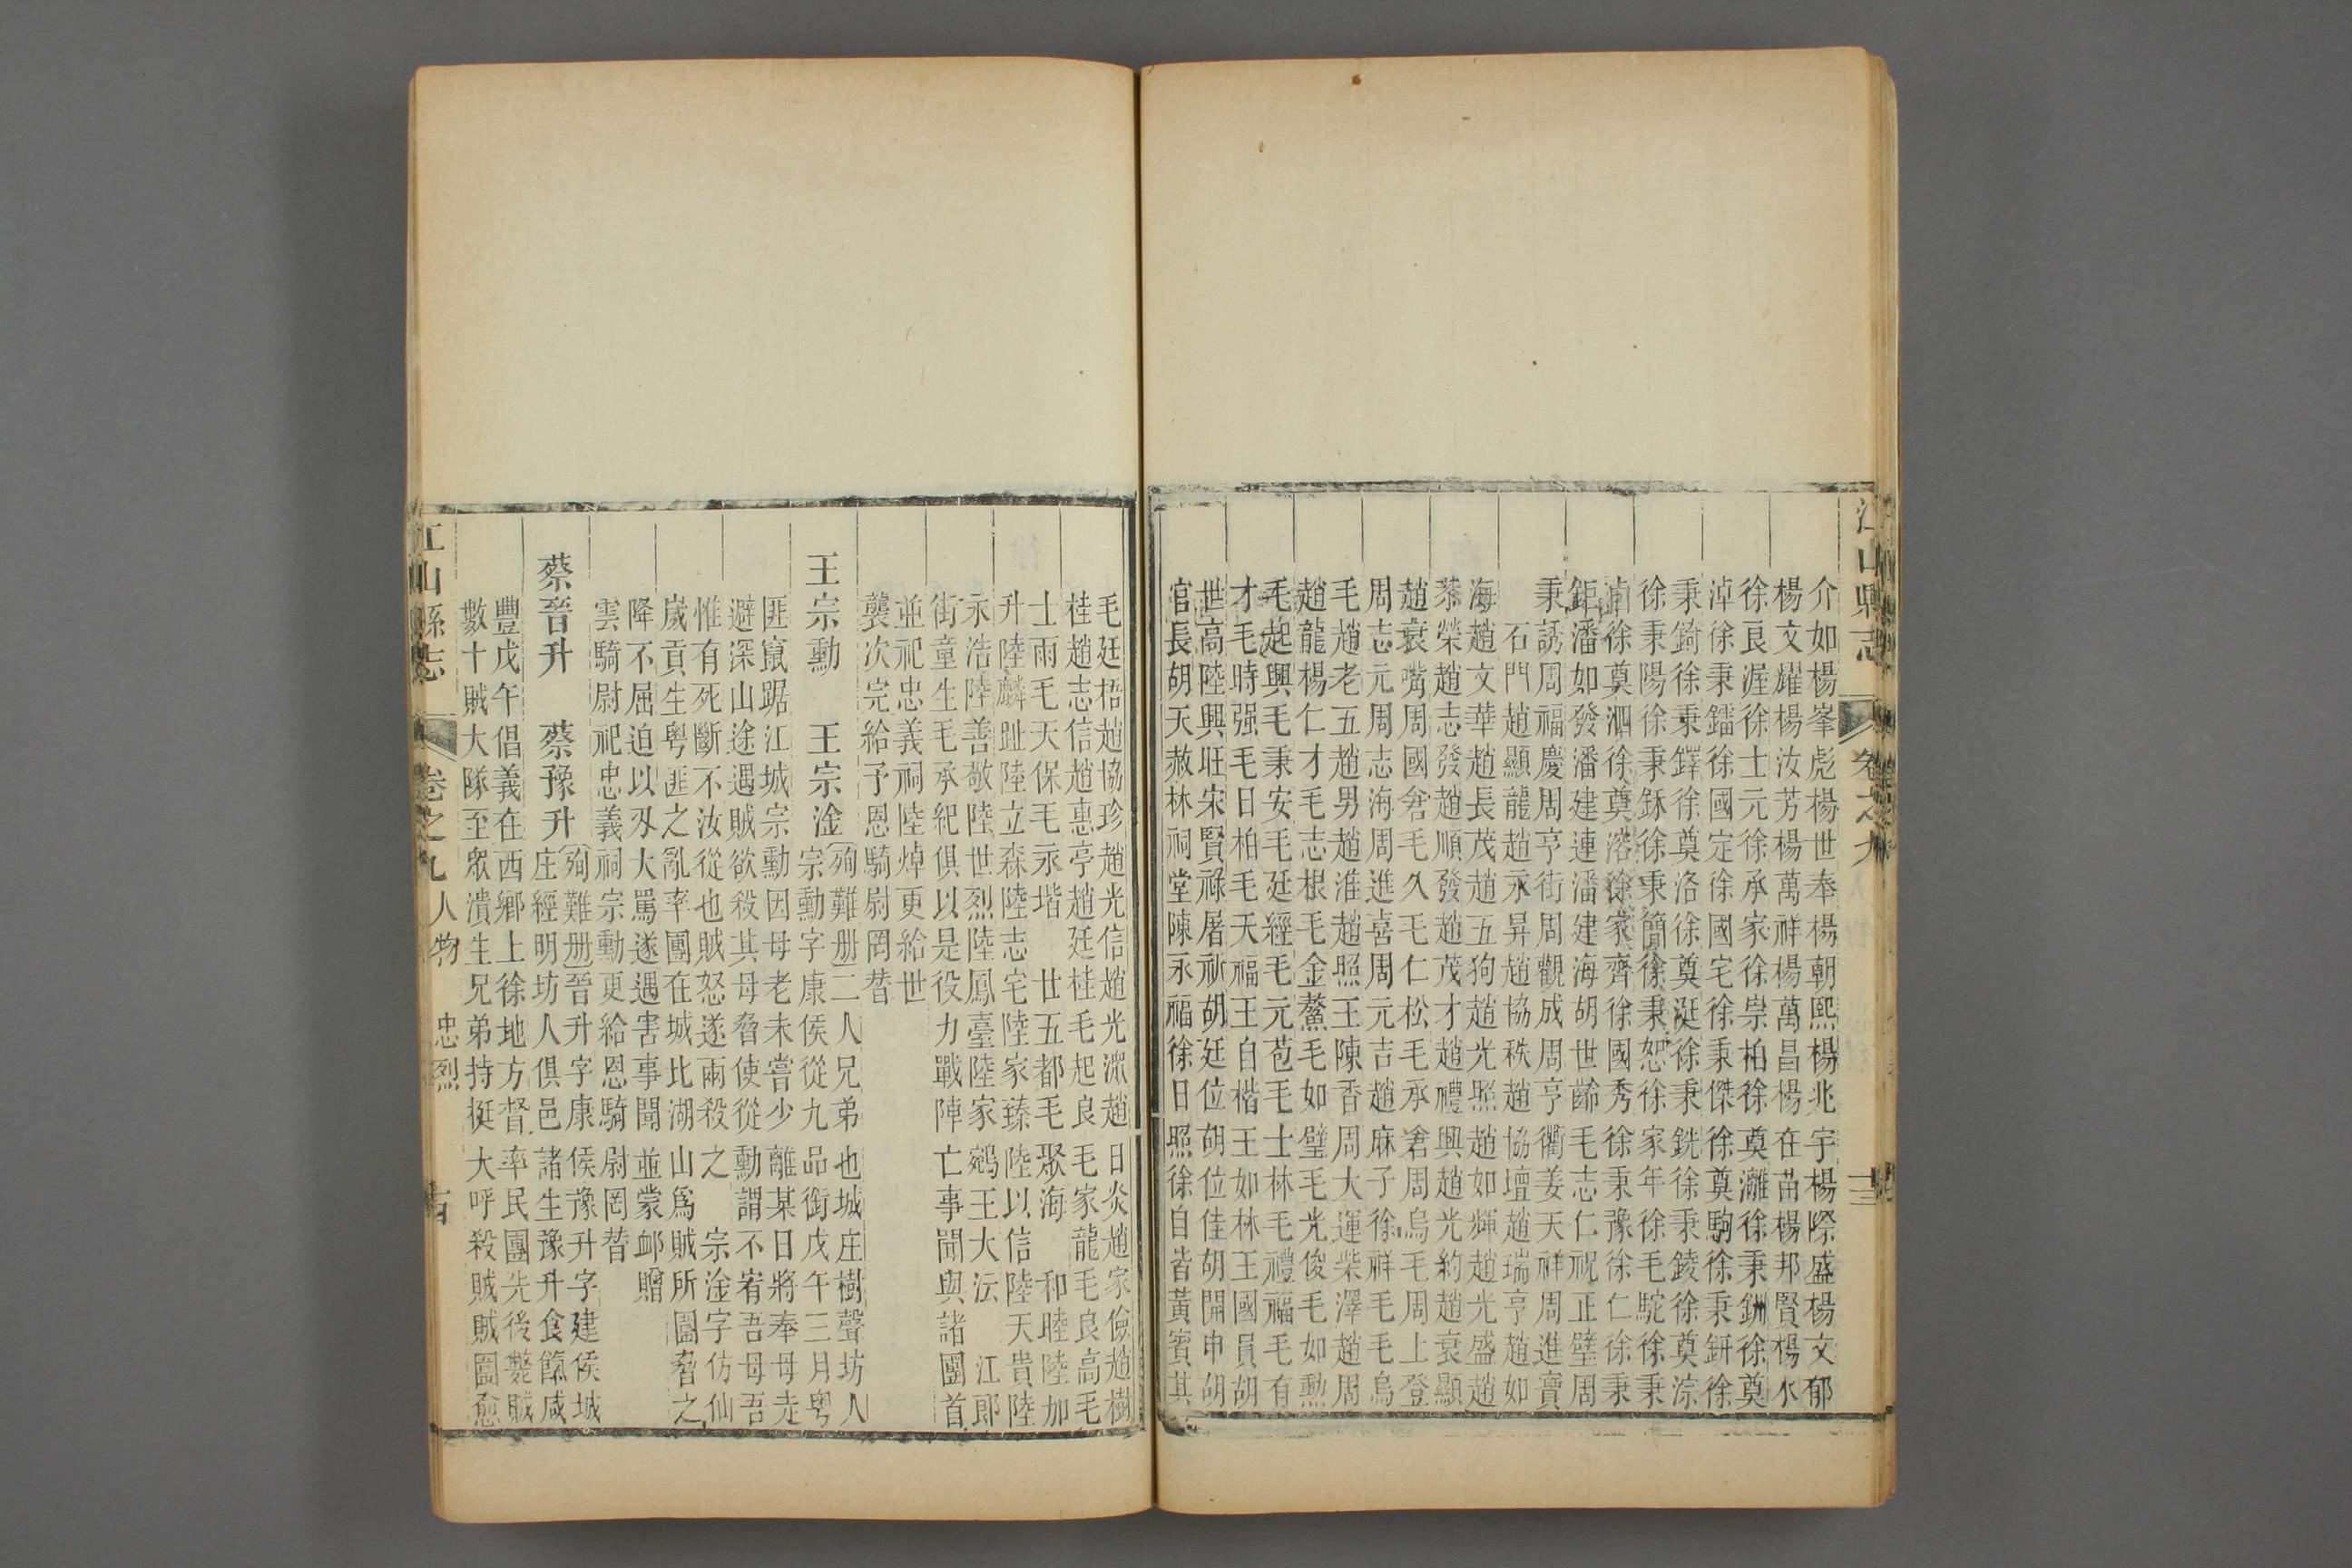 江山縣志
卷之九
十三
介如楊峯彪楊世奉楊朝熙楊兆宇楊際盛楊文郁
楊文耀楊汝芳楊萬祥楊萬昌楊在苗楊邦賢楊水
徐良渥徐士元徐承家徐崇柏徐奠灕徐秉鈿徐奠
淖徐秉鐳徐國定徐國宅徐秉傑徐奠駒徐秉鈃徐
秉錡徐秉鐸徐奠洛徐奠涎徐秉銑徐秉錂徐奠淙
徐秉陽徐秉鉌徐秉簡徐秉恕徐家年徐毛駝徐秉
徐奠泗徐奠溶徐家齊徐國秀徐秉豫徐仁徐秉
鉅潘如發潘建連潘建海胡世齡毛志仁祝正璧周
秉誘周福慶周亨街周觀成周亨衢姜天祥周進寶
石門趙顯龍趙永昇趙協秩趙協壇趙瑞亨趙如
海趙文華趙長茂趙五狗趙光照趙如輝趙光盛趙
榮趙志發趙順發趙茂才趙禮興趙光約趙衰顯
趙衰嘴周國倉毛久毛仁松毛承倉周烏毛周上登
周志元周志海周進喜周元吉趙麻子徐祥毛毛烏
毛趙老五趙男趙淮趙照王陳香周大運柴澤趙周
趙龍楊仁才毛志根毛金鰲毛如璧毛光俊毛如勲
毛起興毛秉安毛廷經毛元苞毛士林毛禮福毛有
才毛時强毛日柏毛天福王自楷王如林王國員胡
世高陸興旺宋賢祿屠胡廷位胡位佳胡開申胡
官長胡天赦林祠堂陳永福徐日照徐自皆黃賓其
毛廷梧趙協珍趙光信趙光淵趙日炎趙家儉趙樹
桂趙志信趙惠亭趙廷桂毛起良毛家龍毛良高毛
士雨毛天保毛永堦 廿五都毛聚海 和睦陸加
升陸麟趾陸立森陸志宅陸家臻陸以信陸天貴陸
永浩陸善敬陸世烈陸鳳臺陸家鵷王大沄 江郎
街童生毛承紀俱以是役力戰陣亡事聞與諸團首
並祀忠義祠陸焯更給世
襲次完給予恩騎尉罔替
王宗勳 王宗淦
殉難册二人兄弟也城庄樹聲坊人
宗勳字康侯從九品銜戊午三月粤
匪竄踞江城宗勳因母老未嘗少離某日將奉母走
避深山途遇賊欲殺其母脅使從勳謂不宥吾母吾
惟有死斷不汝從也賊怒遂兩殺之 宗淦字仿仙
歲貢生粤匪之亂率團在城北湖山爲賊所圖脅之
降不屈迫以刄大罵遂遇害事聞並蒙邺贈
雲騎尉祀忠義祠宗勳更給恩騎尉罔替
蔡晉升 蔡豫升
殉難册晉升字康侯豫升字建侯城
庄經明坊人俱邑諸生豫升食餼咸
豐戊午倡義在西鄉上徐地方督率民團先後斃賊
數十賊大隊至眾潰生兄弟持挺大呼殺賊賊圖愈
江山縣志
卷之九
人物
忠烈